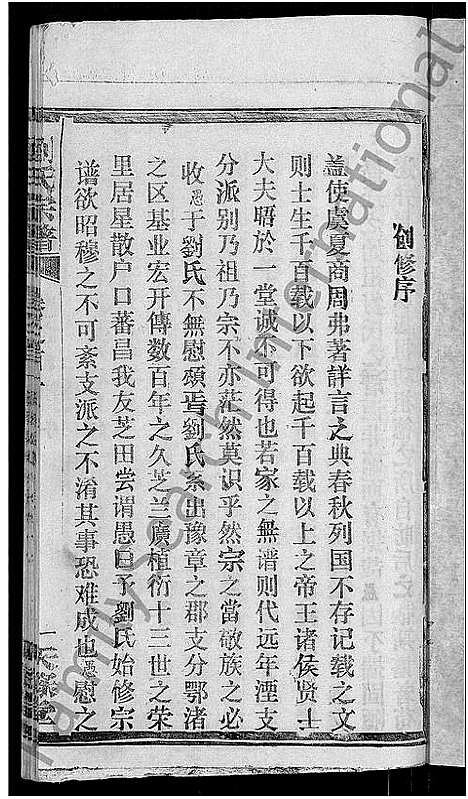 創修序
蓋使虞夏商周弗著詳言之典春秋列国不存记载之文
则士生千百载以下欲起千百载以上之帝王诸侯贤士
大夫晤於一堂诚不可得也若家之無谱则代远年湮支
分派别乃祖乃宗不亦茫然莫识乎然宗之當敬族之必
收愚于劉氏不無慰頌焉劉氏系出豫章之郡支分鄂渚
之区基业宏开傳数百年之久芝兰廣植衍十三世之荣
里居星散户口蕃昌我友芝田尝谓愚曰予劉氏始修宗
谱欲昭穆之不可紊支派之不淆其事恐难成也愚慰之
劉氏宗譜
一
Family Search International